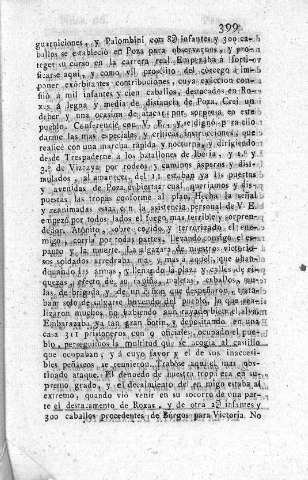 399
guarniciones, y Palombini con 8@ infantes y 300 caballos
se estableció en Poza para observarnos, y proteger
su curso en la carrera real. Empezaba á fortificarse
aquí, y como vil prosélito del corcego á imponer
exôrbitantes contribuciones, cuya exâccion confió
á mil infantes y cien caballos, destacados en Roxas
á legua y media de distancia de Poza. Creí un
deber y una ocasion de atacar por sorpresa en este
pueblo. Conferencié con V. E. y se dignó
darme las mas especiales y instrucciones, que
realicé con una marcha rápida y nocturna, y dirigiendo
desde Trespaderne á los batallones de Iberia, 1.º y
3.º de Vizcaya por rodeos y caminos ásperos y disimulados,
al amanecer del 11 estaban ya las puertas
y avenidas de Poza cubiertas cual queriamos y dispuestas
las tropas conforme al plan. Hecha la señal
y reanimadas estas con la asistencia personal de V. E.
empezó por todos lados el fuego mas terrible y sorprendedor.
Atónito, sobre cogido y terrorizado el enemigo,
corria por todas partes, llevando consigo el espanto
y la muerte. La bizarría de nuestros victoriosos
soldados arredraba mas y mas á aquel, que abandonando
las armas, y llenando la plaza y calles de riquezas,
efecto de su rapiña, maletas, caballos,
de brigada y que despeñaron,
solo de salvarse huyendo del pueblo, lo que realizaron
muchos no habiendo aun rayado bien el alva.
Embarazaba ya tan gran botin, y depositando en una
casa 311 prisioneros con 9 oficiales, ocupado el pueblo,
perseguimos la multitud que se acogia al castillo
que ocupaban, y á cuyo favor y el de sus inaccesibles
peñascos se reunieron. Trabóse aquí el mas obstinado
ataque. El denuedo de nuestra tropa era en supremo
grado, y el decaimiento del enemigo estaba al
extremo, quando vió venir en su socorro de una parte
el destacamento de Roxas, y de otra 2@ infantes y
300 caballos procedentes de Burgos para Victoria. No